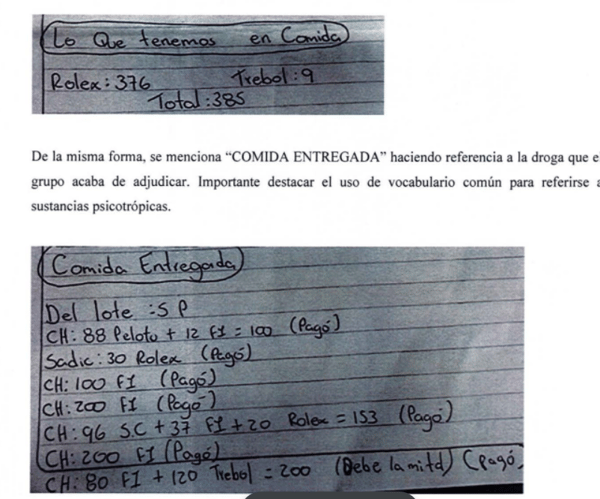 Lo Que tenemos en Comida
Rolex: 376 Trebol: 9
Total: 385
De la misma forma, se menciona “COMIDA ENTREGADA” haciendo referencia a la droga que e
grupo acaba de adjudicar. Importante destacar el uso de vocabulario común para referirse a
sustancias psicotrópicas.
Comida Entregada
Del lote : S P
CH: 88 Pelotu + 12 F1 = 100 (Pagó)
Sadic: 30 Rolex (Pagó)
CH: 100 F1 (Pagó)
CH: 200 F1 (Pagó)
CH: 96 S.C + 37 F1 + 20 Rolex = 153 (Pagó)
CH: 200 F1 (Pagó)
CH: 80 F1 + 120 Trebol = 200 (Debe la mitd) (Pagó.